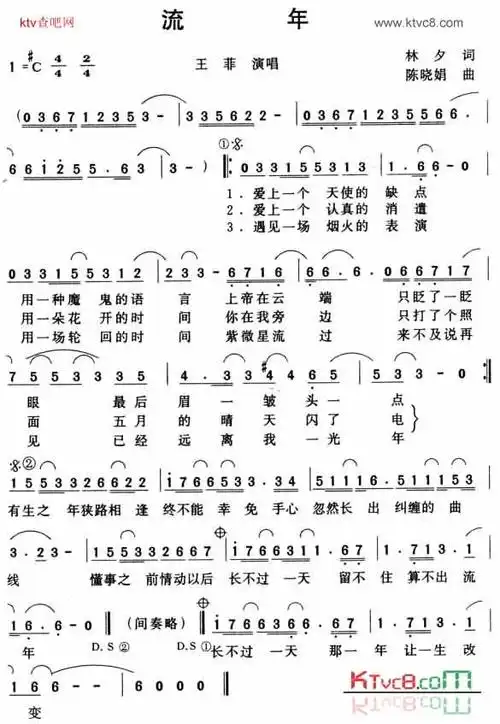 ktv查吧网
流 年
www.ktvc8.com
1=#C 4/4 2/4
王 菲 演唱
林 夕 词
陈晓娟 曲
(0 3 6 7 1 2 3 5 3 - 3 - 0 3 6 7 1 2 3 5 3 5 6 6.
6 6 1 2 5 5. 6 3 3 - 3 -) ① 0 3 3 1 5 5 3 1 3 1. 6 6 - 0
1.爱上一个 天使的 缺 点
2.爱上一个 认真的 消 遣
3.遇见一场 烟火的 表 演
0 3 3 1 5 5 3 1 2 2 3 3 - 6 7 1 6 6. 0 6 6 7 1 6
用一种魔 鬼的语 言 上帝在云 端 只眨了一眨
用一朵花 开的时 间 你在我旁 边 只打了个照
用一场轮 回的时 间 紫微星流 过 来不及说再
7 5 5 3 3 3 5 4. 3 3 4 #4 6 5 5 3 3 - 0
眼 最后 眉 一 皱 头 一 点
面 五月 的 晴 天 闪 了 电
见 已经 远 离 我 一 光 年
② 1 5 5 3 3 2 6 6 2 2 1 7 6 6 5 3 3. 3 4 5 1 1 1 6. 5 1 1 1 6 5
有生之 年狭路相 逢 终不能 幸 免 手心 忽然长 出 纠缠的 曲
3. 2 3 - 1 5 5 3 3 2 6 6 7 1 7 6 6 3 1 1. 6 7 1 1. 6 7
线 懂事之 前情动以后 长不过 一天 留不 住 算不出 流
1 6. 6 - 0 (间奏略) 1 7 6 6 3 1 1. 6 7 1 1. 6 7
年 D.S ② D.S ① 长不过 一天 那一 年 让一生 改
1 6 6 - 6 0 0 0
变
KTvc8.com